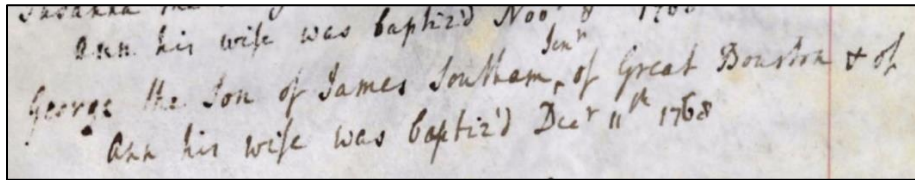 Susanna the
Ann his wife was baptiz'd Novr 8 1768
George the Son of James Southam Junr of Great Bourton & of
Ann his wife was baptiz'd Decr 11th 1768